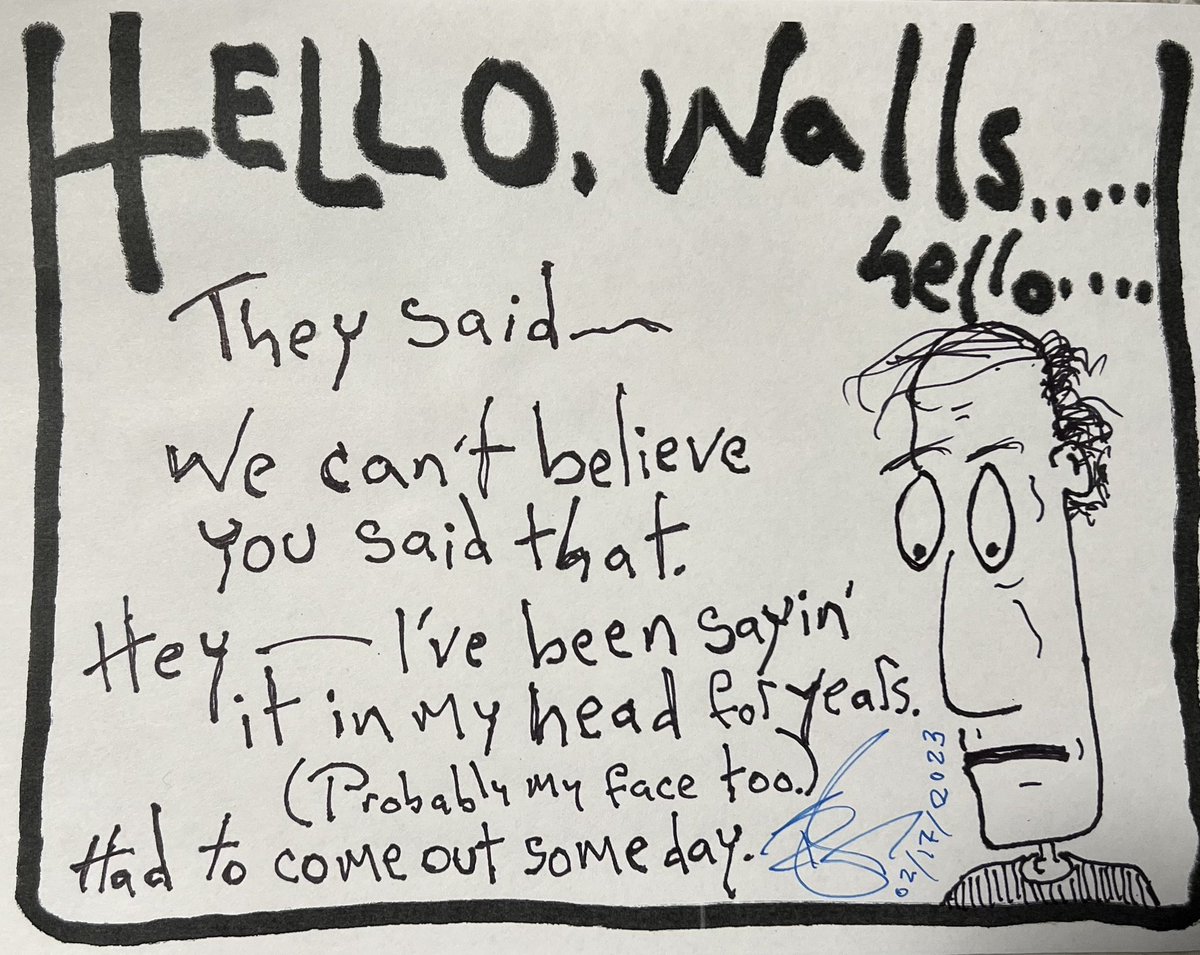 HELLO, Walls.....
hello.....
They said—
We can't believe
you said that.
Hey — I've been sayin'
it in my head for years.
(Probably my face too.)
Had to come out someday.
02/17/2023